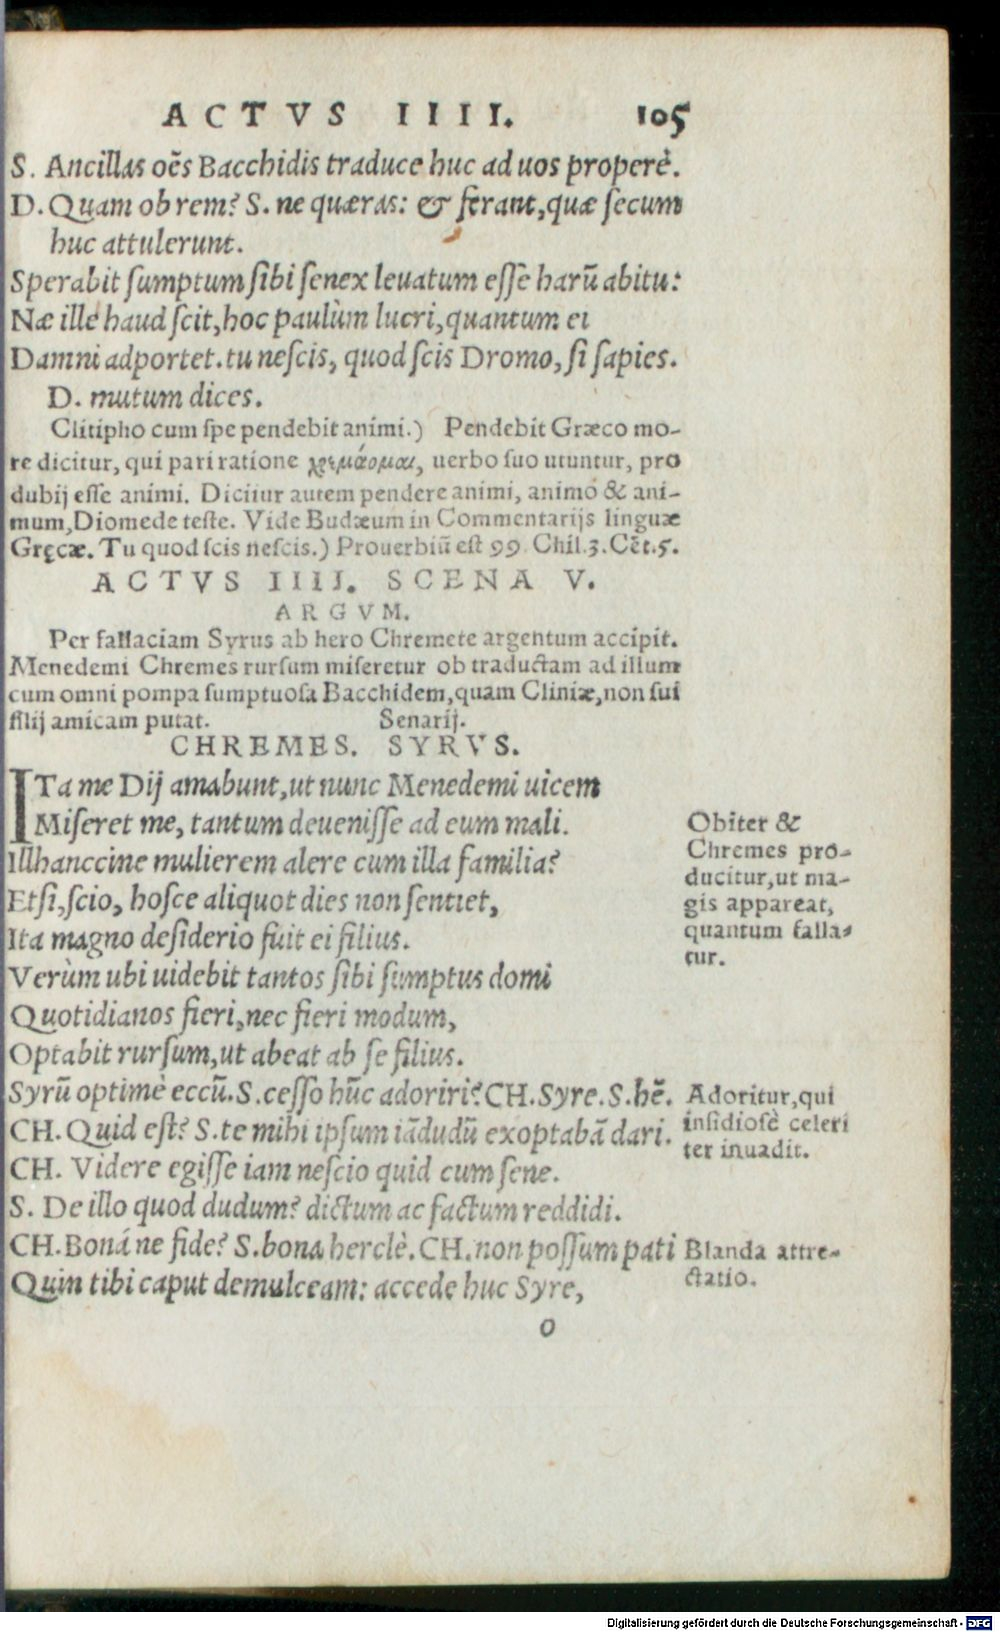 ACTVS IIII. 105
S. Ancillas oẽs Bacchidis traduce huc ad uos properè.
D. Quam ob rem? S. ne quæras: & ferant, quæ secum
huc attulerunt.
Sperabit sumptum sibi senex leuatum esse harũ abitu:
Næ ille haud scit, hoc paulùm lucri, quantum ei
Damni adportet. tu nescis, quod scis Dromo, si sapies.
D. mutum dices.
Clitipho cum spe pendebit animi.) Pendebit Græco mo-
re dicitur, qui pari ratione uerbo suo utuntur, pro
dubij esse animi. Dicitur autem pendere animi, animo & ani-
mum, Diomede teste. Vide Budæum in Commentarijs linguæ
Gręcæ. Tu quod scis nescis.) Prouerbiũ est 99 Chil.3. Cẽt.5.
ACTVS IIII. SCENA V.
ARGVM.
Per fallaciam Syrus ab hero Chremete argentum accipit.
Menedemi Chremes rursum miseretur ob traductam ad illum
cum omni pompa sumptuosa Bacchidem, quam Cliniæ, non sui
filij amicam putat. Senarij.
CHREMES. SYRVS.
ITa me Dij amabunt, ut nunc Menedemi uicem
Miseret me, tantum deuenisse ad eum mali.
Illhanccine mulierem alere cum illa familia?
Etsi, scio, hosce aliquot dies non sentiet,
Ita magno desiderio fuit ei filius.
Verùm ubi uidebit tantos sibi sumptus domi
Quotidianos fieri, nec fieri modum,
Optabit rursum, ut abeat ab se filius.
Syrũ optimè eccũ. S. cesso hũc adoriri? CH. Syre. S. hẽ.
CH. Quid est? S. te mihi ipsum iãdudũ exoptabã dari.
CH. Videre egisse iam nescio quid cum sene.
S. De illo quod dudum? dictum ac factum reddidi.
CH. Bonán e fide? S. bona herclè. CH. non possum pati
Quin tibi caput demulceam: accede huc Syre,
O
Obiter &
Chremes pro-
ducitur, ut ma-
gis appareat,
quantum falla-
tur.
Adoritur, qui
insidiosè celeri
ter inuadit.
Blanda attre-
ctatio.
Digitalisierung gefördert durch die Deutsche Forschungsgemeinschaft - DFG